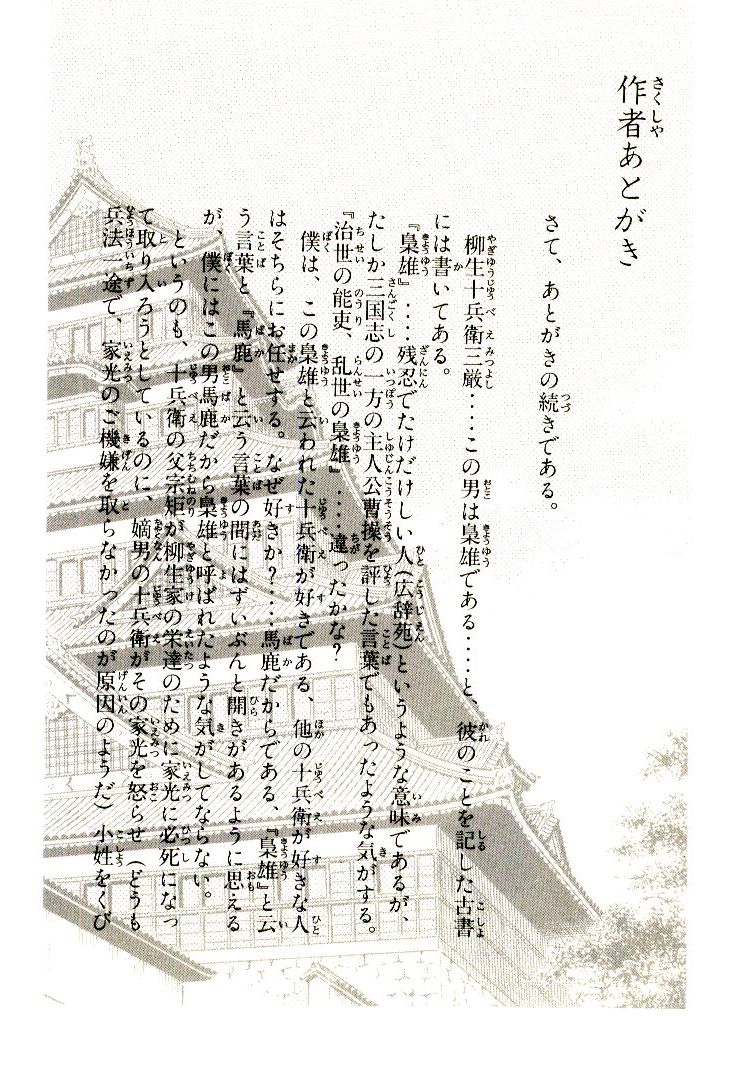 作者あとがき
さて、あとがきの続きである。
柳生十兵衛三厳‥‥この男は梟雄である‥‥と、彼のことを記した古書
には書いてある。
『梟雄』‥‥残忍でたけだけしい人(広辞苑)というような意味であるが、
たしか三国志の一方の主人公曹操を評した言葉でもあったような気がする。
『治世の能吏、乱世の梟雄』‥‥違ったかな?
僕は、この梟雄と云われた十兵衛が好きである、他の十兵衛が好きな人
はそちらにお任せする。なぜ好きか?‥‥馬鹿だからである、『梟雄』と云
う言葉と『馬鹿』と云う言葉の間にはずいぶんと開きがあるように思える
が、僕にはこの男馬鹿だから梟雄と呼ばれたような気がしてならない。
というのも、十兵衛の父宗矩が柳生家の栄達のために家光に必死になっ
て取り入ろうとしているのに、嫡男の十兵衛がその家光を怒らせ(どうも
兵法一途で、家光のご機嫌を取らなかったのが原因のようだ)小姓をくび